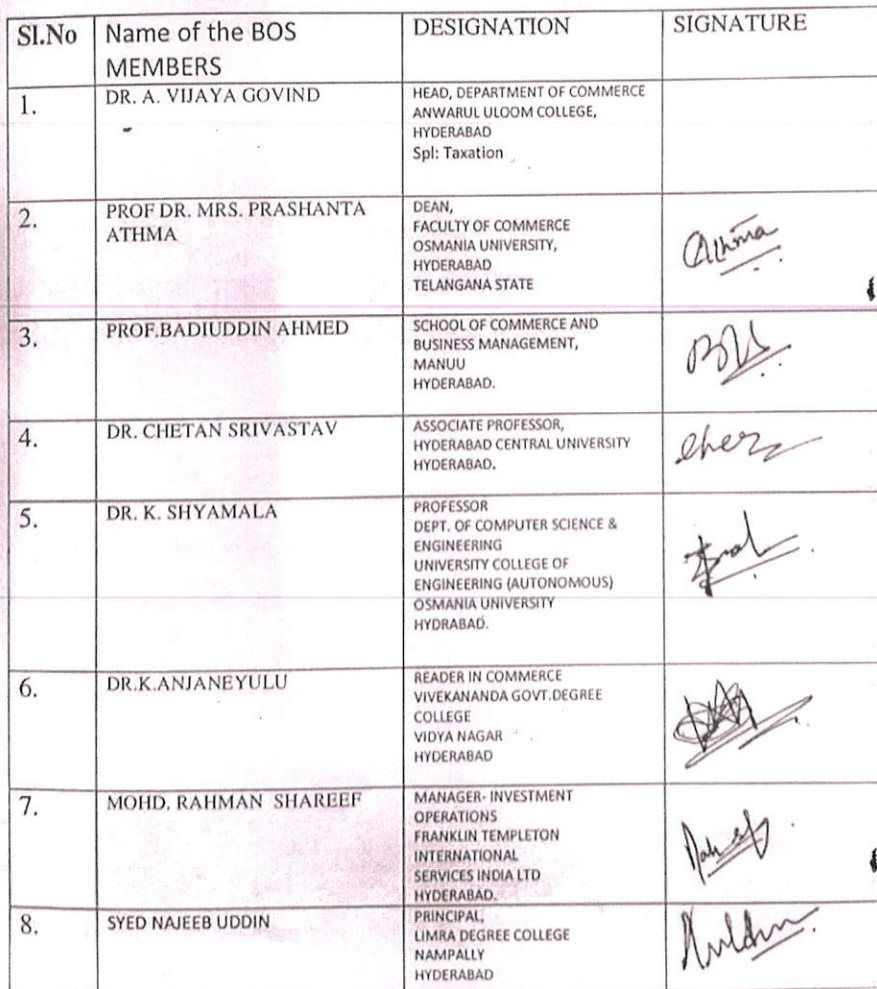 Sl.No Name of the BOS MEMBERS DESIGNATION SIGNATURE
1. DR. A. VIJAYA GOVIND
HEAD, DEPARTMENT OF COMMERCE
ANWARUL ULOOM COLLEGE,
HYDERABAD
Spl: Taxation
2. PROF DR. MRS. PRASHANTA
ATHMA
DEAN,
FACULTY OF COMMERCE
OSMANIA UNIVERSITY,
HYDERABAD
TELANGANA STATE
Athma
3. PROF.BADIUDDIN AHMED
SCHOOL OF COMMERCE AND
BUSINESS MANAGEMENT,
MANUU
HYDERABAD.
4. DR. CHETAN SRIVASTAV
ASSOCIATE PROFESSOR,
HYDERABAD CENTRAL UNIVERSITY
HYDERABAD.
5. DR. K. SHYAMALA
PROFESSOR
DEPT. OF COMPUTER SCIENCE &
ENGINEERING
UNIVERSITY COLLEGE OF
ENGINEERING (AUTONOMOUS)
OSMANIA UNIVERSITY
HYDRABAD.
6. DR.K.ANJANEYULU
READER IN COMMERCE
VIVEKANANDA GOVT.DEGREE
COLLEGE
VIDYA NAGAR
HYDERABAD
7. MOHD. RAHMAN SHAREEF
MANAGER- INVESTMENT
OPERATIONS
FRANKLIN TEMPLETON
INTERNATIONAL
SERVICES INDIA LTD
HYDERABAD.
8. SYED NAJEEB UDDIN
PRINCIPAL,
LIMRA DEGREE COLLEGE
NAMPALLY
HYDERABAD